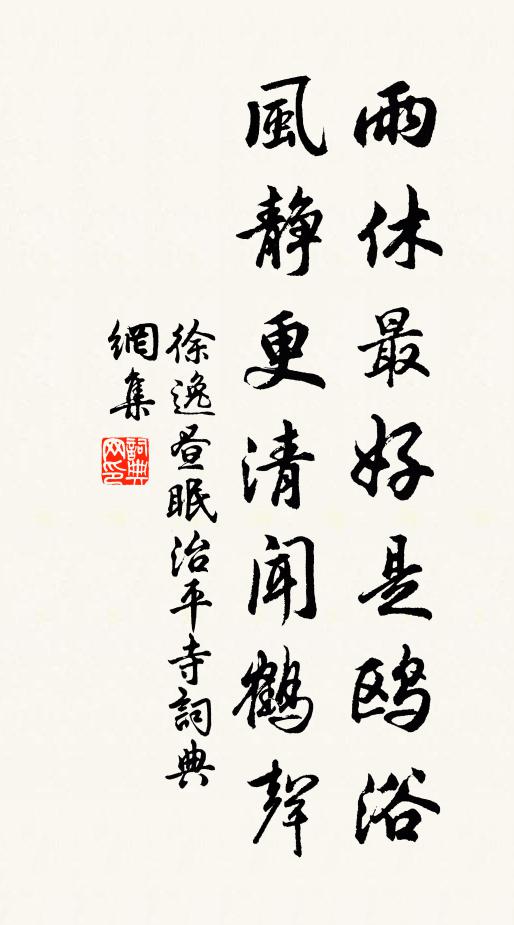 雨休最好是鸥浴
風静更清闻鶴聲
徐逸昼眠治平寺詞典
網集
詞典网印